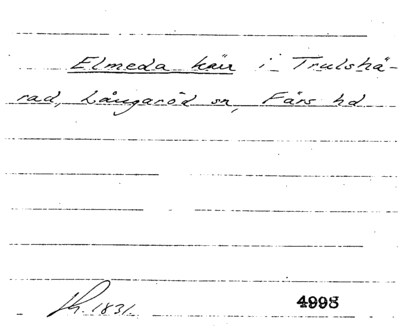 Elmeda kärr i Trulshä-
rad, Långaröd sn, Färs hd
1831. 4995